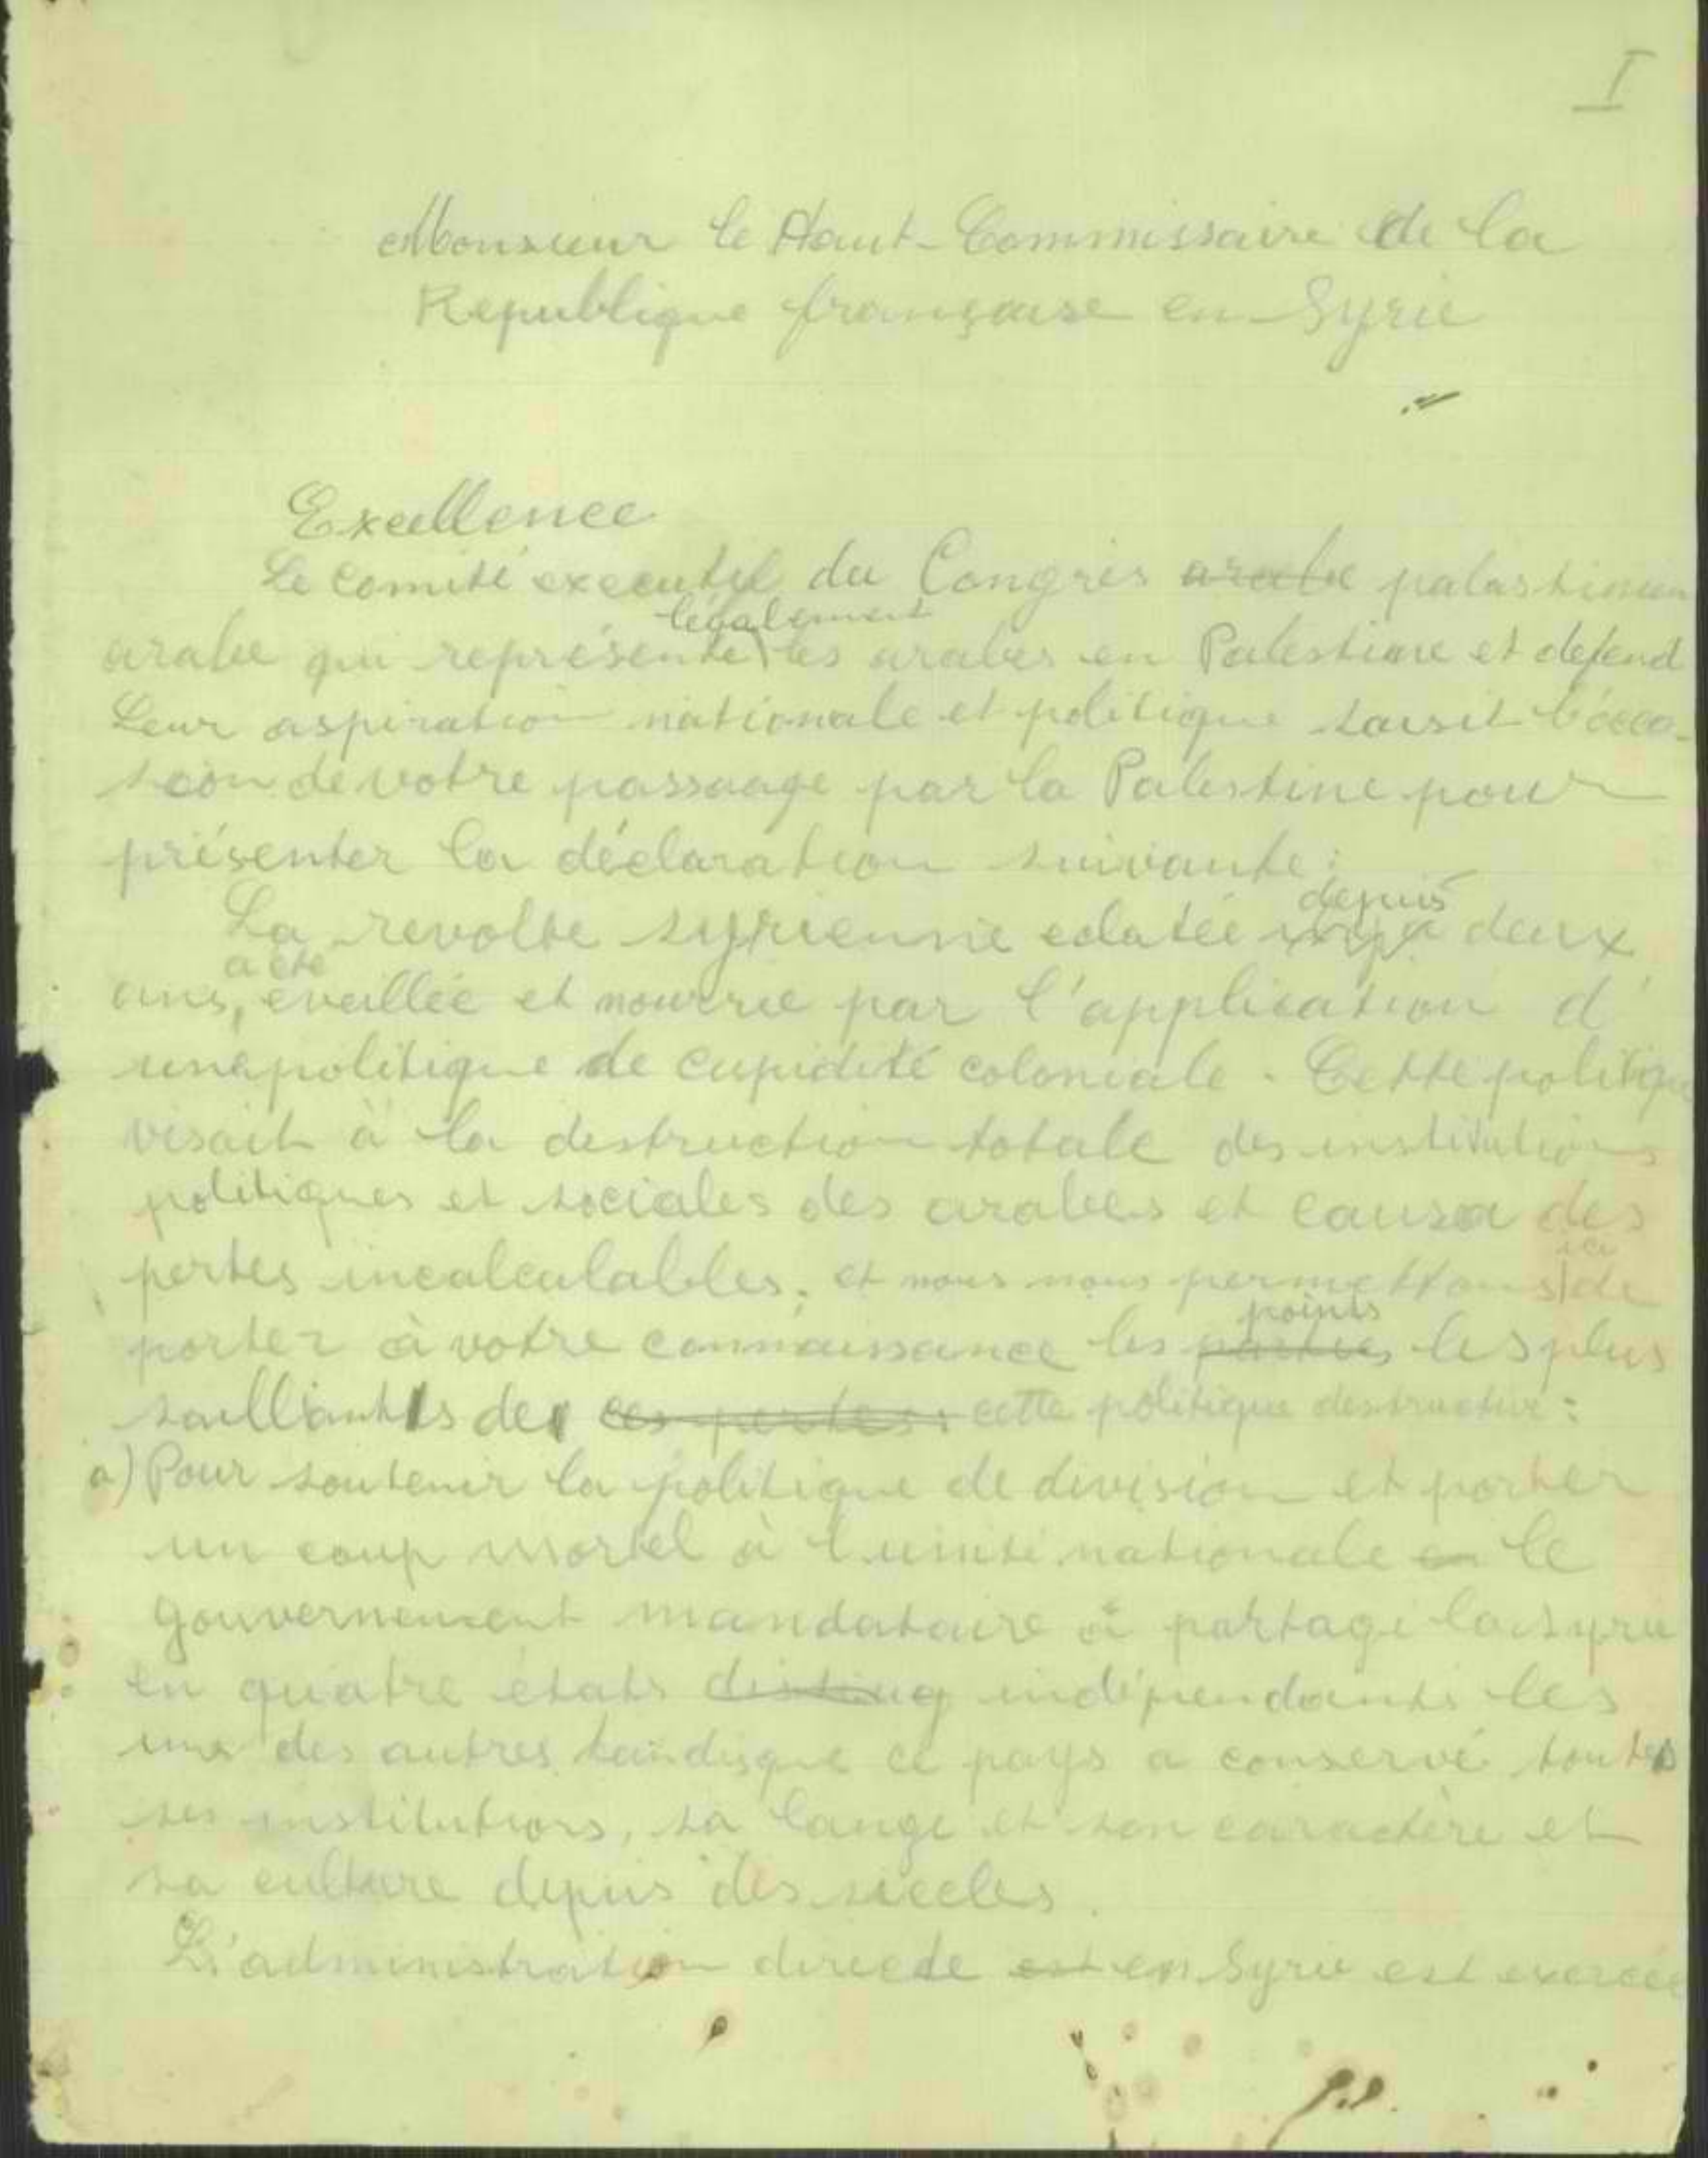 I
Monsieur le Haut-Commissaire de la
Republique française en Syrie
Excellence
Le Comité executif du Congrès arabe palastinien
légalement
arabe qui représente les arabes en Palestine et defend
Leur aspiration nationale et politique saisit l'occa-
sion de votre passage par la Palestine pour
présenter la déclaration suivante:
depuis
La revolte syrienne eclatée deux
a été
ans, eveillée et nourrie par l'application d'
une politique de cupidité coloniale. Cette politique
visait à la destruction totale des institutions
politiques et sociales des arabes et causa des
ici
pertes incalculables, et nous nous permettons de
points
porter à votre connaissance les parties les plus
saillants de ces pertes: cette politique destructive:
a) Pour soutenir la politique de division et porter
un coup mortel à l'unité nationale en le
gouvernement mandataire a partagé la Syrie
en quatre etats disting indépendants les
uns des autres tandisque ce pays a conservé toutes
ses institutions, sa lange et son caractère et
sa culture depuis des siecles.
L'administration directe est en Syrie est exercée